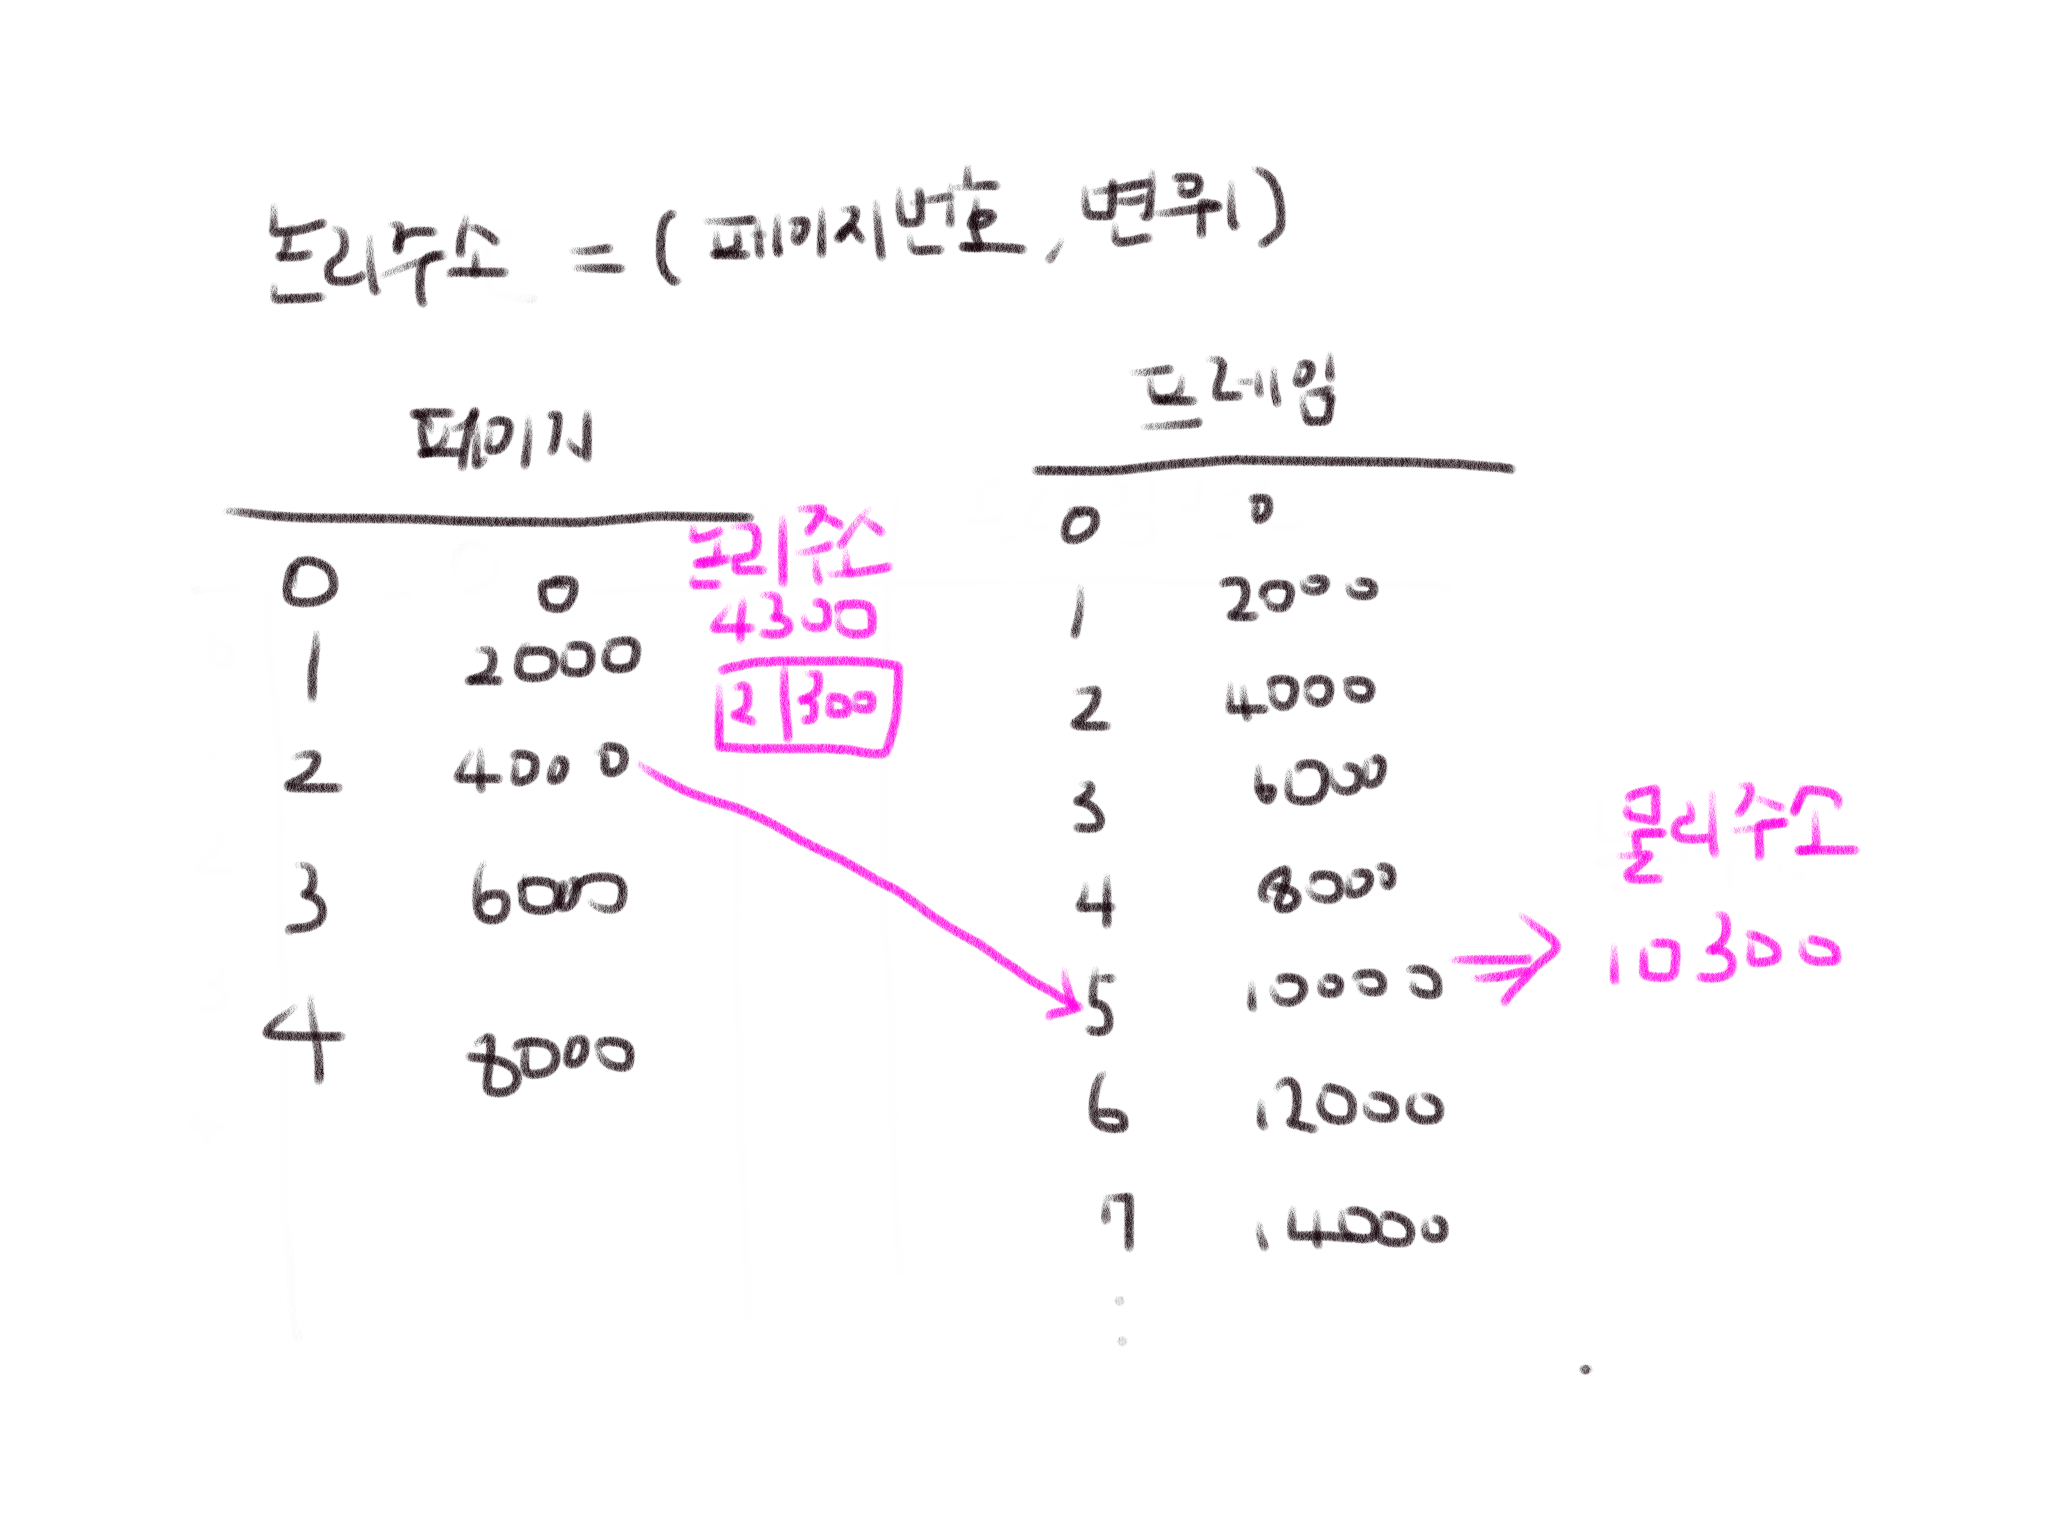 논리주소 = ( 페이지번호, 변위)
페이지
0 0
1 2000
2 4000
3 6000
4 8000
논리주소
4300
2 300
프레임
0 0
1 2000
2 4000
3 6000
4 8000
5 10000
6 12000
7 14000
물리주소
10300